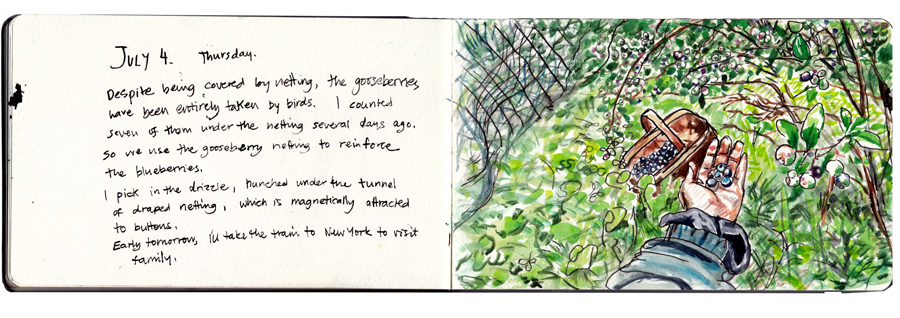 July 4. Thursday.
Despite being covered by netting, the gooseberries
have been entirely taken by birds. I counted
seven of them under the netting several days ago.
So we use the gooseberry netting to reinforce
the blueberries.
I pick in the drizzle, hunched under the tunnel
of draped netting, which is magnetically attracted
to buttons.
Early tomorrow, I'll take the train to New York to visit
family.